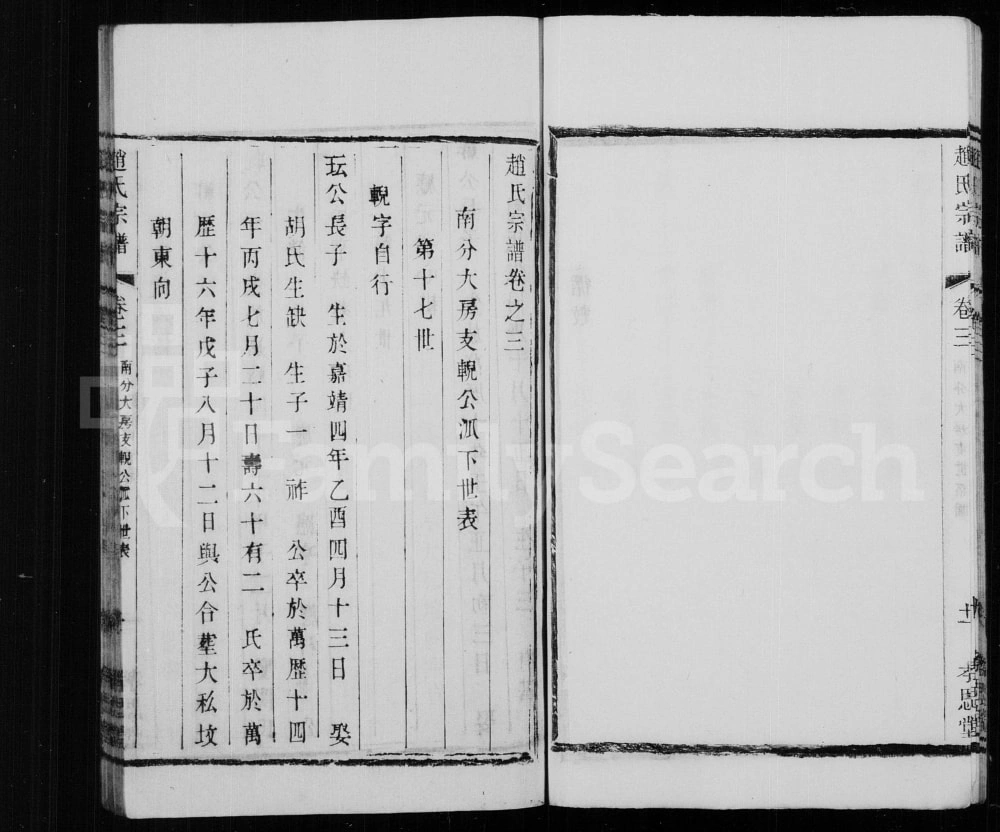 趙氏宗譜
卷三
十一
孝思堂
趙氏宗譜卷之三
南分大房支輗公派下世表
第十七世
輗字自行
珤公長子 生於嘉靖四年乙酉四月十三日 娶
胡氏生缺 生子一 祚 公卒於萬歷十四
年丙戌七月二十日壽六十有二 氏卒於萬
歷十六年戊子八月十二日與公合塟大私坟
朝東向
趙氏宗譜
卷三
南分大房支輗公派下世表
FamilySearch